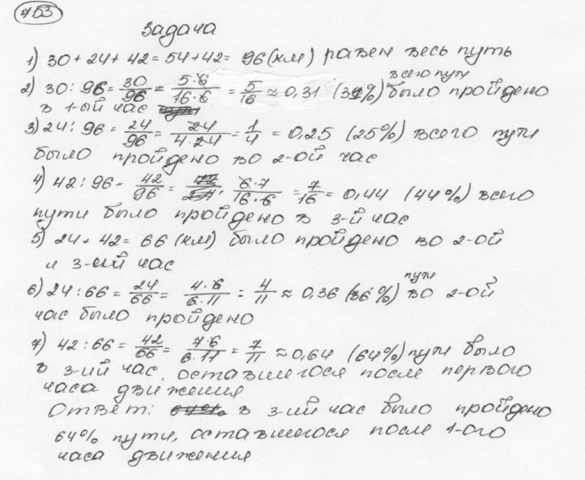 753
Задача
1) 30 + 24 + 42 = 54 + 42 = 96 (км) равен весь путь
2) 30 : 96 = 30/96 = 5·6/16·6 = 5/16 ≈ 0,31 (31%) всего пути было пройдено
в 1-ый час
3) 24 : 96 = 24/96 = 24/4·24 = 1/4 = 0,25 (25%) всего пути
было пройдено во 2-ой час
4) 42 : 96 = 42/96 = 6·7/16·6 = 7/16 = 0,44 (44%) всего
пути было пройдено в 3-й час
5) 24 + 42 = 66 (км) было пройдено во 2-ой
и 3-ий час
6) 24 : 66 = 24/66 = 4·6/6·11 = 4/11 ≈ 0,36 (36%) пути во 2-ой
час было пройдено
7) 42 : 66 = 42/66 = 7·6/6·11 = 7/11 ≈ 0,64 (64%) пути было
в 3-ий час, оставшегося после первого
часа движения
Ответ: в 3-ий час было пройдено
64% пути, оставшегося после 1-ого
часа движения